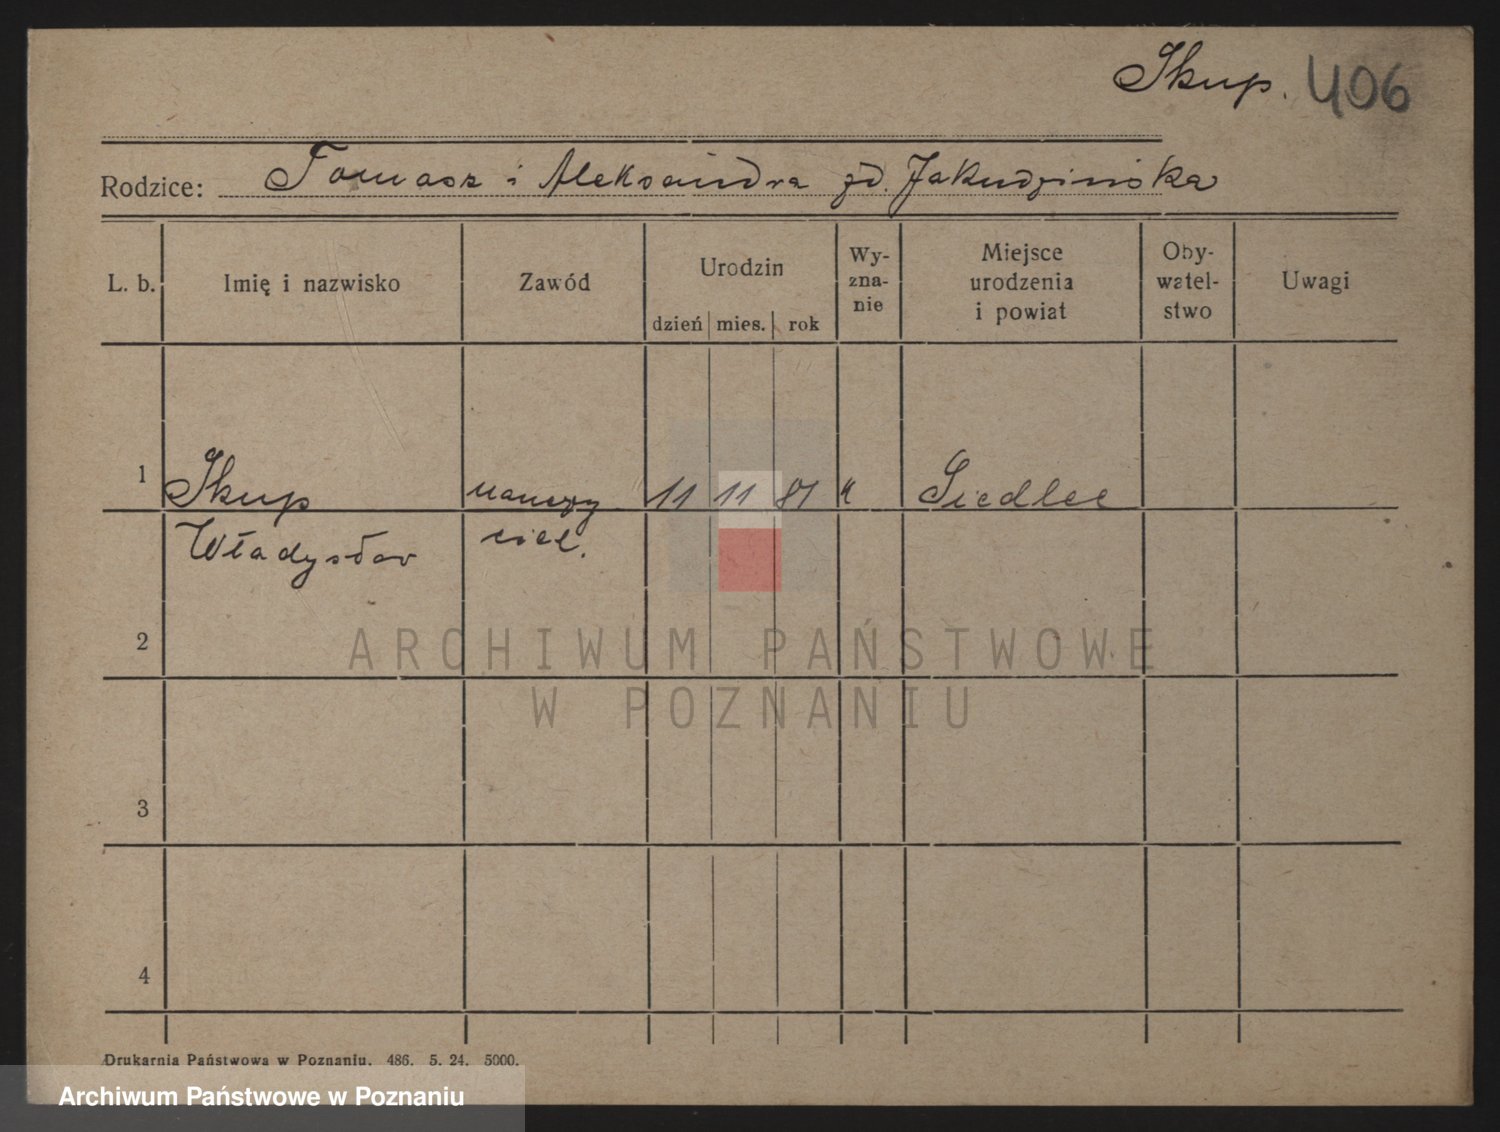 Skup. 406
Rodzice: Tomasz i Aleksandra zd. Jakudzińska
L. b. Imię i nazwisko Zawód Urodzin dzień mies. rok Wy-znanie Miejsce urodzenia i powiat Oby-watel-stwo Uwagi
1 Skup nauczy 11 11 81 k Siedlce
Władysław ciel.
2
ARCHIWUM PAŃSTWOWE
W POZNANIU
3
4
Drukarnia Państwowa w Poznaniu. 486. 5. 24. 5000.
Archiwum Państwowe w Poznaniu